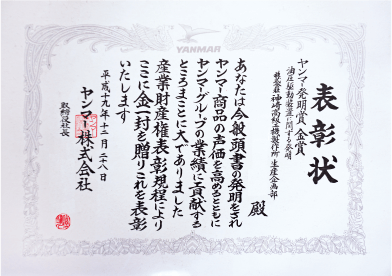 YANMAR
表彰状
ヤンマー発明賞 金賞
油圧駆動装置に関する発明
㈱神崎高級工機製作所 生産企画部
殿
あなたは今般頭書の発明をされ
ヤンマー商品の声価を高めるとともに
ヤンマーグループの業績に貢献する
ところまことに大でありました
産業財産権表彰規程により
ここに金一封を贈りこれを表彰
いたします
平成十九年十二月二八日
ヤンマー株式会社
取締役社長